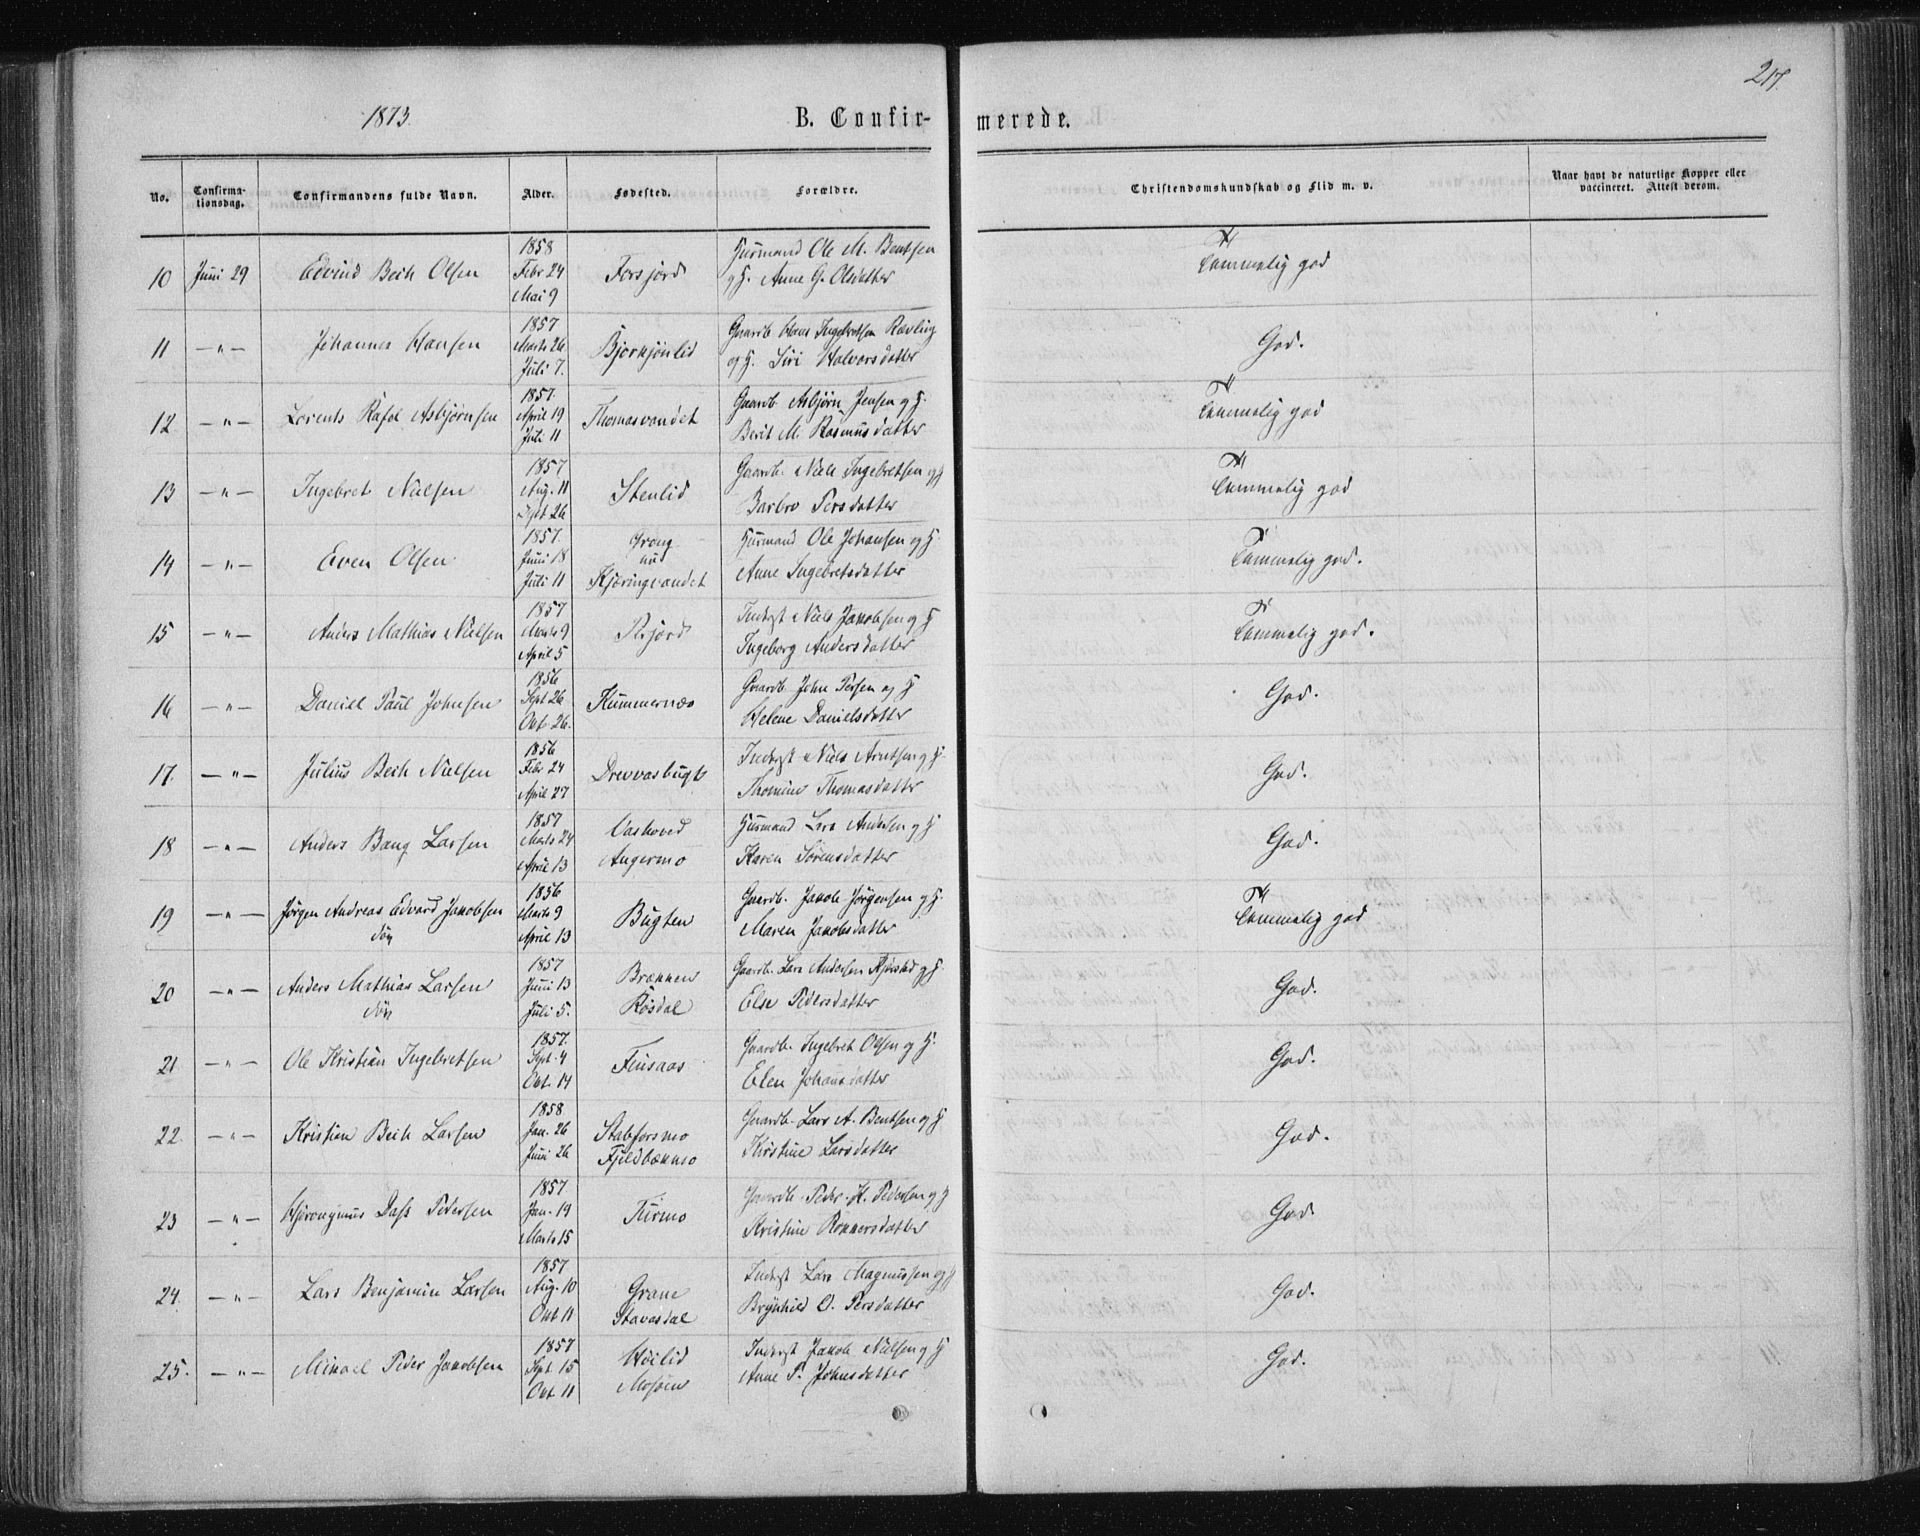 217.
1873.
B. Confir-
merede.
No.
Confirma-
tionsdag.
Confirmandens fulde Navn.
Alder.
Fødested.
Forældre.
Christendomskundskab og Flid m. v.
Naar havt de naturlige Kopper eller
vaccineret. Attest derom.
10 Juni 29 Edvind Beck Olsen 1858 Febr 24 Mai 9 Forsjord Huusmand Ole M. Bentsen
og H. Anne G. Olsdatter
Temmelig god
11 —"— Johannes Hansen 1857 Marts 26 Juli 7. Bjorkjönlid Gaardb Hans Ingebretsen Rævling
og H. Siri Halvorsdatter
God.
12 —"— Lorents Rafal Asbjørnsen 1857. April 19 Juli 11 Thomasvandet Gaardb. Asbjørn Jensen og H.
Berit M. Rasmusdatter
Temmelig god
13 —"— Ingebret Nielsen 1857 Aug. 11 Sept 26 Stenlid Gaardb. Niels Ingebretsen og H
Barbro Persdatter
Temmelig god
14 —"— Even Olsen 1857. Juni 18 Juli 11 Grong
nu
Kjæringvandet Huusmand Ole Johansen og H.
Anne Ingebretsdatter
Temmelig god.
15 —"— Anders Mathias Nielsen 1857 Marts 9 April 5 Inderst Niels Jakobsen og H
Ingeborg Andersdatter
Temmelig god.
16 —"— Daniel Paul Johnsen 1856 Sept 26 Okt. 26. Kummernæs Gaardb. John Persen og H
Helene Danielsdatter
God.
17. —"— Julius Beck Nielsen 1856 Febr 24 April 27 Drevvasbugt Inderst Niels Arntsen og H.
Thomine Thomasdatter
God.
18 —"— Anders Bang Larsen 1857 Marts 24 April 13 Vashoved
Angermo Huusmand Lars Andersen og H
Karen Sørensdatter
God.
19 —"— Jørgen Andreas Edvard Jakobsen 1856 Marts 9 April 13 Bugten Gaardb. Jakob Jørgensen og H.
Maren Jakobsdatter
Temmelig god
20 —"— Anders Mathias Larsen 1857 Juni 13 Juli 5. Brækken
Røsdal Gaardb. Lars Andersen og H.
Else Pedersdatter
God.
21 —"— Ole Kristian Ingebretsen 1857. Sept. 4 Okt. 14 Finsaas Gaardb. Ingebret Olsen og H.
Elen Johansdatter
God.
22. —"— Kristian Beck Larsen 1858 Jan. 26 Juni 26 Stabforsmo
Fjeldbækmo Gaardb. Lars A. Bentsen og H
Kirstine Larsdatter
God.
23 —"— Hjeronymus Dass Pedersen 1857 Jan. 19 Marts 15 Turmo Gaardb. Peder K. Pedersen og H
Kristine
God.
24. —"— Lars Benjamin Larsen 1857 Aug. 10 Okt 11 Grane
Stavasdal Inderst Lars Magnussen og H
Brynhild O. Persdatter
God.
25. —"— Mikael Peder Jakobsen 1857 Sept. 15 Okt. 11 Høilid
Mosjøen Inderst Jakob Nielsen og H
Anne P. Johnsdatter
God.